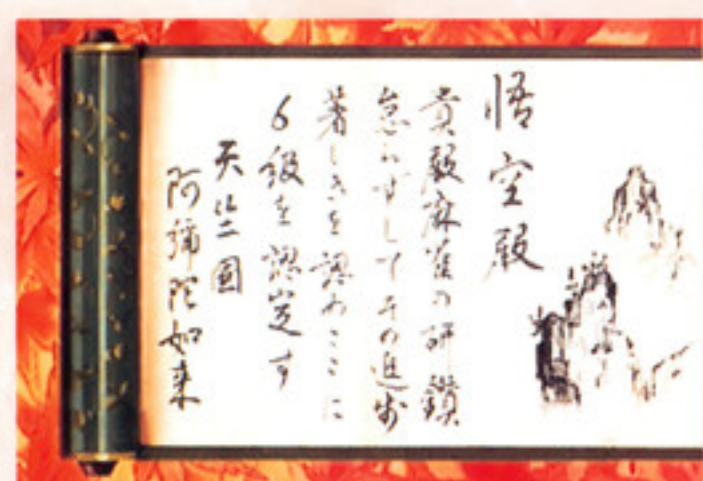 悟空殿
貴殿麻雀の研鑽
怠らずしてその進歩
著しきを認めここに
6級を認定す
天竺国
阿彌陀如来